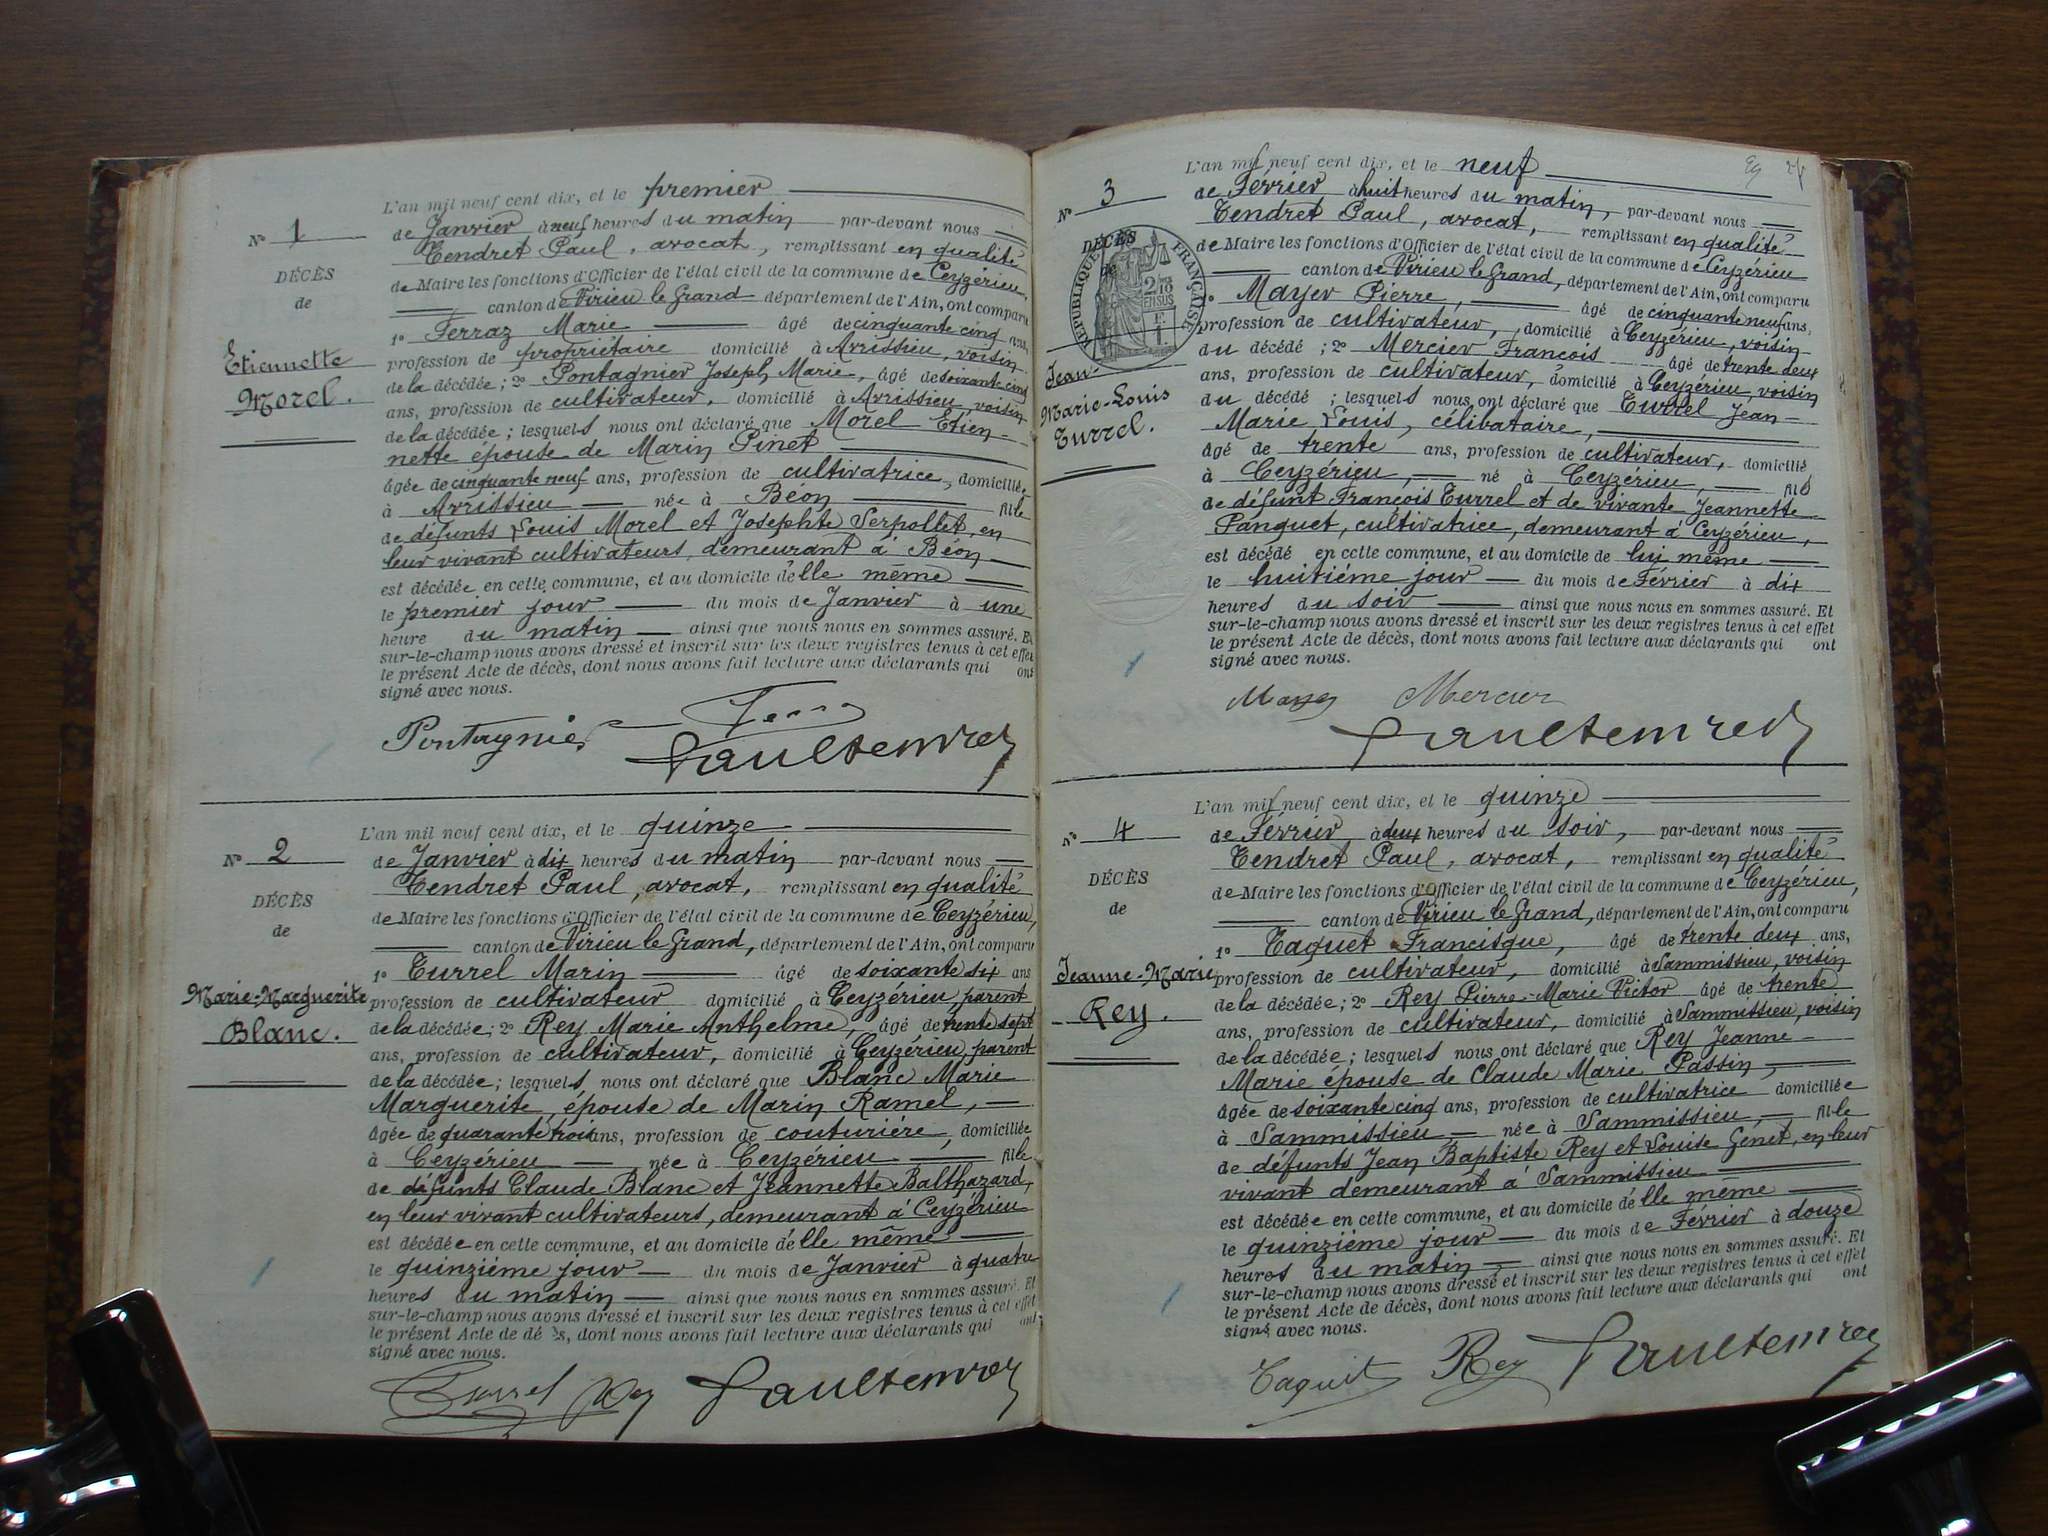 L'an mil neuf cent dix, et le premier
N° 1
de Janvier à neuf heures du matin par-devant nous
Tendret Paul, avocat, remplissant en qualité
DÉCÈS
de Maire les fonctions d'Officier de l'état civil de la commune de Ceyzérieu,
de
canton de Virieu le Grand département de l'Ain, ont comparu
1° Ferraz Marie âgé de cinquante cinq ans,
Etiennette
profession de propriétaire domicilié à Avrissieu, voisin
Morel.
de la décédée; 2° Pontagnier Joseph Marie, âgé de soixante cinq
ans, profession de cultivateur, domicilié à Avrissieu, voisin
de la décédée; lesquels nous ont déclaré que Morel Etien-
nette épouse de Marin Pinet
âgée de cinquante neuf ans, profession de cultivatrice, domiciliée
à Avrissieu née à Béon fille
de défunts Louis Morel et Josephte Serpollet, en
leur vivant cultivateurs, demeurant à Béon
est décédée en cette commune, et au domicile d'elle même
le premier jour du mois de Janvier à une
heure du matin ainsi que nous nous en sommes assuré. Et
sur-le-champ nous avons dressé et inscrit sur les deux registres tenus à cet effet
le présent Acte de décès, dont nous avons fait lecture aux déclarants qui ont
signé avec nous.
Pontagnier
L'an mil neuf cent dix, et le quinze
N° 2
de Janvier à dix heures du matin par-devant nous
Tendret Paul, avocat, remplissant en qualité
DÉCÈS
de Maire les fonctions d'Officier de l'état civil de la commune de Ceyzérieu,
de
canton de Virieu le Grand, département de l'Ain, ont comparu
1° Turrel Marin âgé de soixante six ans
Marie-Marguerite
profession de cultivateur domicilié à Ceyzérieu, parent
Blanc.
de la décédée; 2° Rey Marie Anthelme, âgé de trente sept
ans, profession de cultivateur, domicilié à Ceyzérieu, parent
de la décédée; lesquels nous ont déclaré que Blanc Marie
Marguerite, épouse de Marin Ramel,
âgée de quarante trois ans, profession de couturière, domiciliée
à Ceyzérieu née à Ceyzérieu fille
de défunts Claude Blanc et Jeannette Balthazard,
en leur vivant cultivateurs, demeurant à Ceyzérieu
est décédée en cette commune, et au domicile d'elle même
le quinzième jour du mois de Janvier à quatre
heures du matin ainsi que nous nous en sommes assuré. Et
sur-le-champ nous avons dressé et inscrit sur les deux registres tenus à cet effet
le présent Acte de décès, dont nous avons fait lecture aux déclarants qui ont
signé avec nous.
Turrel Rey
L'an mil neuf cent dix, et le neuf
N° 3
de Février à huit heures du matin, par-devant nous
Tendret Paul, avocat, remplissant en qualité
DÉCÈS
de Maire les fonctions d'Officier de l'état civil de la commune de Ceyzérieu
RÉPUBLIQUE FRANÇAISE
canton de Virieu le Grand, département de l'Ain, ont comparu
1° Mayer Pierre, âgé de cinquante neuf ans,
profession de cultivateur, domicilié à Ceyzérieu, voisin
Jean-
Marie-Louis
Turrel.
du décédé; 2° Mercier François âgé de trente deux
ans, profession de cultivateur, domicilié à Ceyzérieu, voisin
du décédé; lesquels nous ont déclaré que Turrel Jean-
Marie Louis, célibataire,
âgé de trente ans, profession de cultivateur, domicilié
à Ceyzérieu, né à Ceyzérieu, fils
de défunt François Turrel et de vivante Jeannette
Panguet, cultivatrice, demeurant à Ceyzérieu,
est décédé en cette commune, et au domicile de lui même
le huitième jour du mois de Février à dix
heures du soir ainsi que nous nous en sommes assuré. Et
sur-le-champ nous avons dressé et inscrit sur les deux registres tenus à cet effet
le présent Acte de décès, dont nous avons fait lecture aux déclarants qui ont
signé avec nous.
Mercier
L'an mil neuf cent dix, et le quinze
N° 4
de Février à deux heures du soir, par-devant nous
Tendret Paul, avocat, remplissant en qualité
DÉCÈS
de Maire les fonctions d'Officier de l'état civil de la commune de Ceyzérieu,
de
canton de Virieu le Grand, département de l'Ain, ont comparu
1° Taquet Francisque, âgé de trente deux ans,
Jeanne-Marie
profession de cultivateur, domicilié à Sammissieu, voisin
Rey.
de la décédée; 2° Rey Pierre-Marie Victor âgé de trente
ans, profession de cultivateur, domicilié à Sammissieu, voisin
de la décédée; lesquels nous ont déclaré que Rey Jeanne-
Marie épouse de Claude Marie Passin,
âgée de soixante cinq ans, profession de cultivatrice domiciliée
à Sammissieu née à Sammissieu fille
de défunts Jean Baptiste Rey et Louise Génet, en leur
vivant demeurant à Sammissieu
est décédée en cette commune, et au domicile d'elle même
le quinzième jour du mois de Février à douze
heures du matin ainsi que nous nous en sommes assuré. Et
sur-le-champ nous avons dressé et inscrit sur les deux registres tenus à cet effet
le présent Acte de décès, dont nous avons fait lecture aux déclarants qui ont
signé avec nous.
Taquet Rey